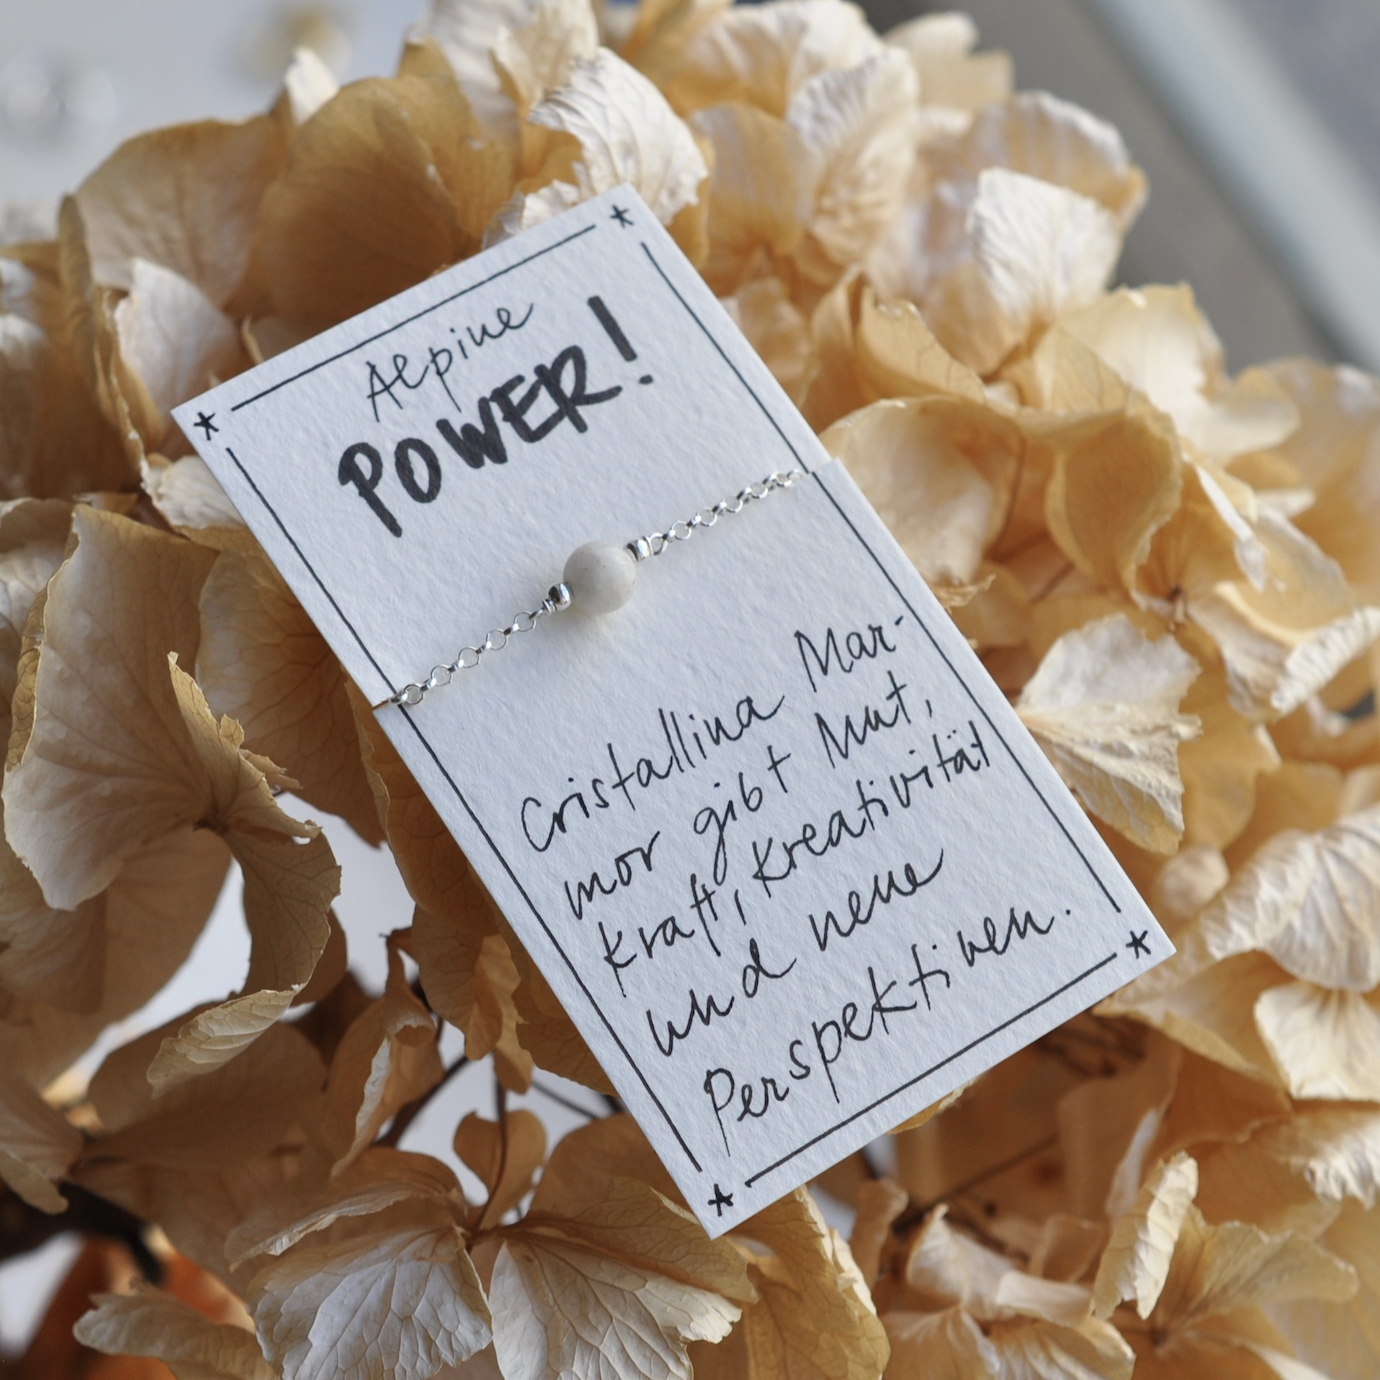 Alpine
POWER!
Cristallina Mar-
mor gibt Mut,
Kraft, Kreativität
und neue
Perspektiven.